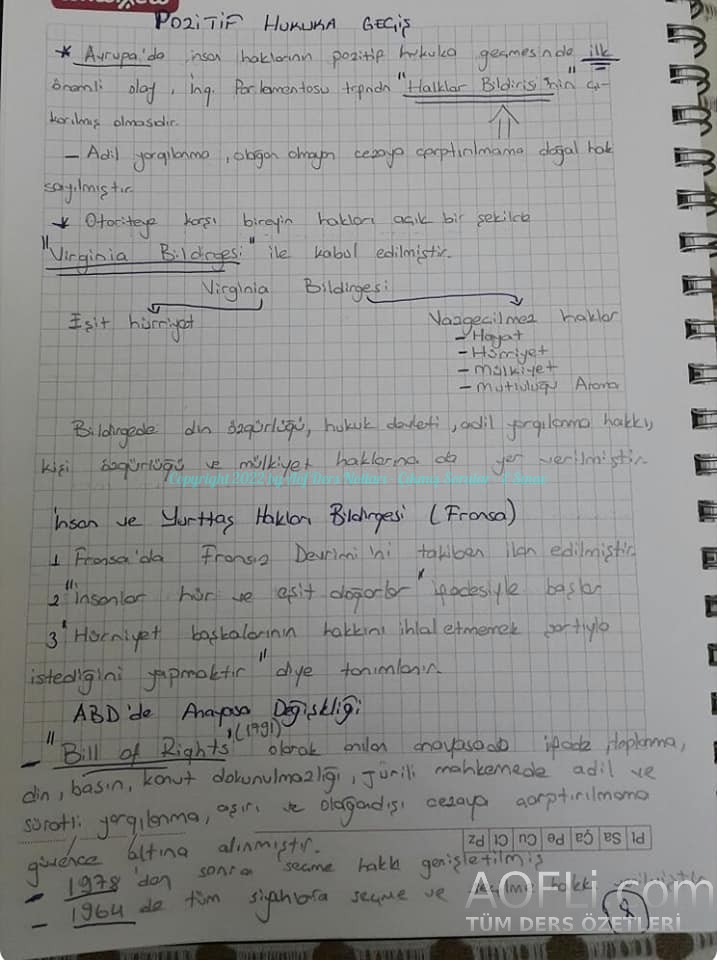 POZİTİF HUKUKA GEÇİŞ
* Avrupa'da insan haklarının pozitif hukuka geçmesinde ilk
önemli olay, İng. Parlamentosu trfndn "Halklar Bildirisi'nin" çı-
karılmış olmasıdır.
- Adil yargılanma, olağan olmayan cezaya çarptırılmama doğal hak
sayılmıştır.
* Otoriteye karşı bireyin hakları açık bir şekilde
"Virginia Bildirgesi" ile kabul edilmiştir.
Virginia Bildirgesi
Eşit hürriyet
Vazgeçilmez haklar
- Hayat
- Hürriyet
- Mülkiyet
- Mutluluğu Arama
Bildirgede din özgürlüğü, hukuk devleti, adil yargılanma hakkı,
kişi özgürlüğü ve mülkiyet haklarına da yer verilmiştir.
Copyright 2022 by
İnsan ve Yurttaş Hakları Bildirgesi (Fransa)
1 Fransa'da Fransız Devrimi'ni takiben ilan edilmiştir.
2 "İnsanlar hür ve eşit doğarlar" ifadesiyle başlar
3 "Hürriyet başkalarının hakkını ihlal etmemek şartıyla
istediğini yapmaktır" diye tanımlanır.
ABD'de Anayasa Değişkliği
- "Bill of Rights" (1991) olarak anılan anayasada ifade, toplanma,
din, basın, konut dokunulmazlığı, jürili mahkemede adil ve
süratli yargılanma, aşırı ve olağandışı cezaya çarptırılmama
güvence altına alınmıştır.
Pt Sa Ça Pe Cu Ct Pz
- 1978'dan sonra seçme hakkı genişletilmiş
- 1964 de tüm siyahlara seçme ve seçilme hakkı verilmiştir
AOFLi.com
TÜM DERS ÖZETLERİ